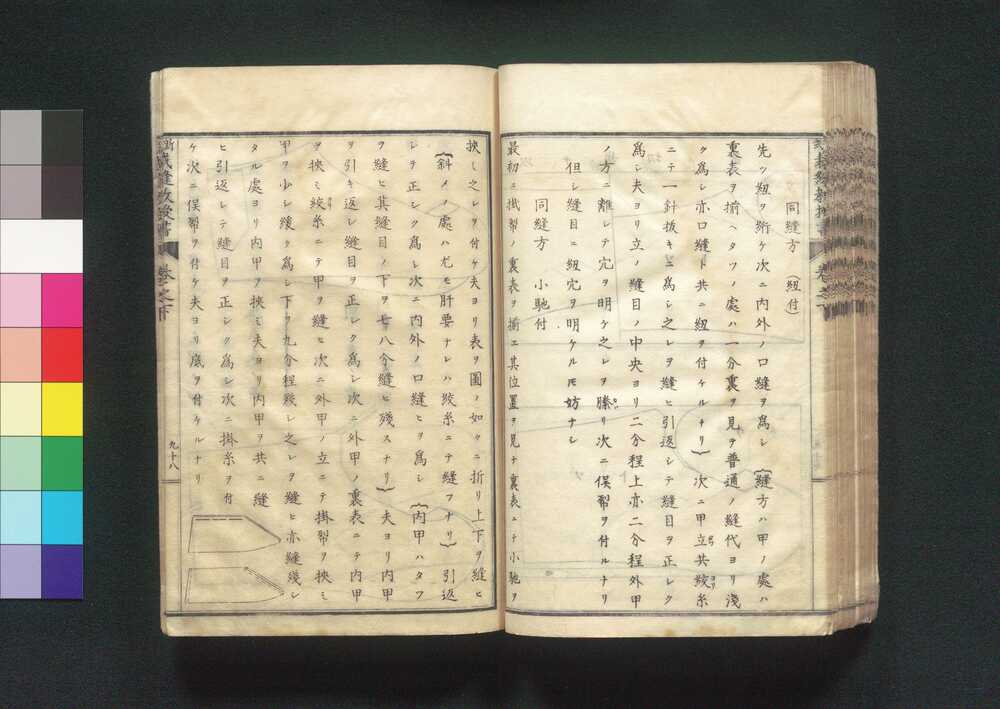 同縫方 (紐付)
先ツ紐ヲ絎ケ次ニ内外ノ口縫ヲ爲シ (縫方ハ甲ノ處ハ
裏表ヲ揃ヘタフノ處ハ一分裏ヲ見ヲ普通ノ縫代ヨリ淺
ク爲シ亦口縫ト共ニ紐ヲ付ケルナリ) 次ニ甲立共絞糸
ニテ一針拔キニ爲シ之レヲ縫ヒ引返シテ縫目ヲ正シク
爲シ夫ヨリ立ノ縫目ノ中央ヨリ二分程上亦二分程外甲
ノ方ニ離レテ宂ヲ明ケ之レヲ縢リ次ニ俣幇ヲ付ルナリ
但シ縫目ニ紐宂ヲ明ケルモ妨ナシ
同縫方 小馳付
最初ニ掛幇ノ裏表ヲ揃エ其位置ヲ見ナ裏表ニテ小馳ヲ
挾ミ之レヲ付ケ夫ヨリ表ヲ圖ノ如クニ折リ上下ヲ縫ヒ
(斜メノ處ハ尤モ肝要ナレハ絞糸ニテ縫フナリ) 引返
シテ正シク爲シ次ニ内外ノ口縫ヒヲ爲シ (内甲ハタフ
ヲ縫ヒ其縫目ノ下ヲ七八分縫ヒ殘スナリ) 夫ヨリ内甲
ヲ引キ返シ縫目ヲ正シク爲シ次ニ外甲ノ裏表ニテ内甲
ヲ挾ミ絞糸ニテ甲ヲ縫ヒ次ニ外甲ノ立ニテ掛幇ヲ挾ミ
甲ヲ少シ緩ク爲シ下ヲ九分程殘シ之レヲ縫ヒ亦縫殘シ
タル處ヨリ内甲ヲ挾ミ夫ヨリ内甲ヲ共ニ縫
ヒ引返シテ縫目ヲ正シク爲シ次ニ掛糸ヲ付
ケ次ニ俣幇ヲ付ケ夫ヨリ底ヲ付ケルナリ
裁縫教授書 卷之下
九十八